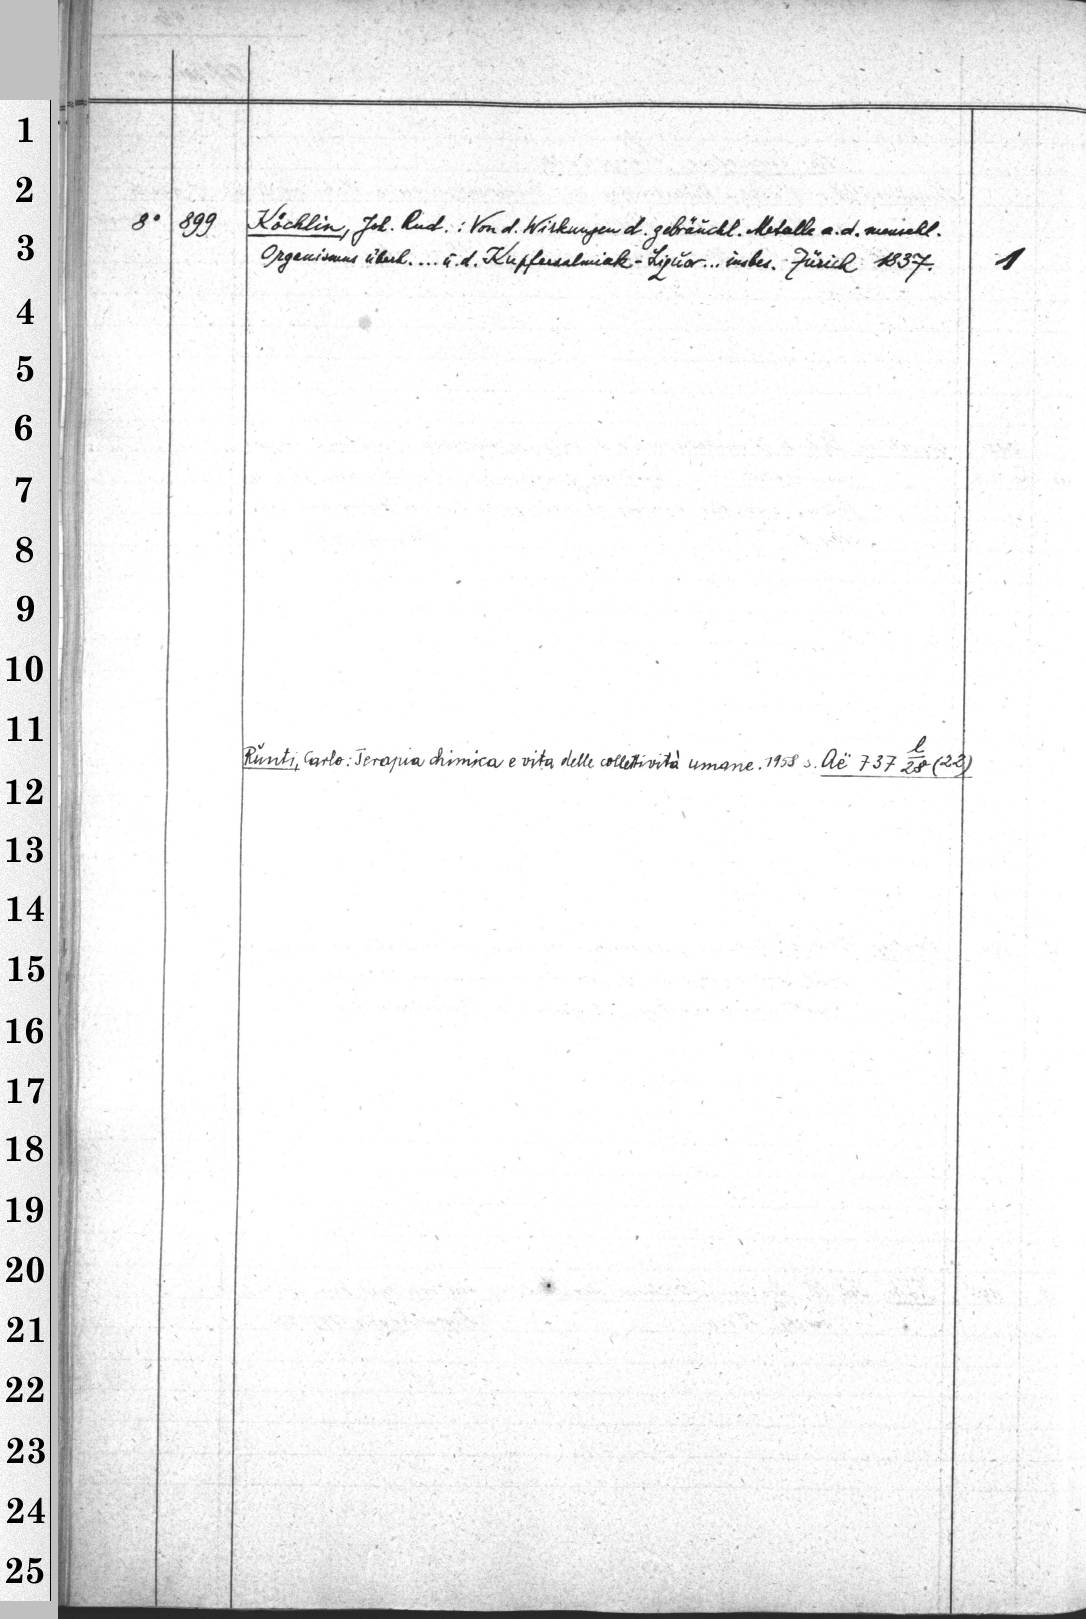 1
2
8° 899 Köchlin, Joh. Rud.: Von d. Wirkungen d. gebräuchl. Metalle a. d. menschl.
3
Organismus überh. ... u. d. Kupfersalmiak-Liquor ... insbes. Zürich 1837. 1
4
5
6
7
8
9
10
11
Runti, Carlo: Terapia chimica e vita delle collettività umane. 1958 s. Aë 737 l/28 (22)
12
13
14
15
16
17
18
19
20
21
22
23
24
25